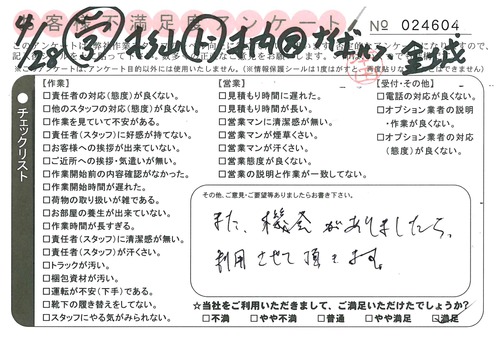 お客様不満足度アンケート
№ 024604
4/28
チェックリスト
【作業】
□責任者の対応(態度)が良くない。
□他のスタッフの対応(態度)が良くない。
□作業を見ていて不安がある。
□責任者(スタッフ)に好感が持てない。
□お客様への挨拶が出来ていない。
□ご近所への挨拶・気遣いが無い。
□作業開始前の内容確認がなかった。
□作業開始時間が遅れた。
□荷物の取り扱いが雑である。
□お部屋の養生が出来ていない。
□作業時間が長すぎる。
□責任者(スタッフ)に清潔感が無い。
□責任者(スタッフ)が汗くさい。
□トラックが汚い。
□梱包資材が汚い。
□運転が不安(下手)である。
□靴下の履き替えをしてない。
□スタッフにやる気がみられない。
【営業】
□見積もり時間に遅れた。
□見積もり時間が長い。
□営業マンに清潔感が無い。
□営業マンが煙草くさい。
□営業マンが汗くさい。
□営業態度が良くない。
□営業の説明と作業が一致してない。
【受付・その他】
□電話の対応が良くない。
□オプション業者の説明
・作業が良くない。
□オプション業者の対応
(態度)が良くない。
その他、ご意見・ご要望等ありましたらお書き下さい。
また、機会がありましたら、
利用させて頂きます。
☆当社をご利用いただきまして、ご満足いただけたでしょうか?
□不満 □やや不満 □普通 □やや満足 □満足